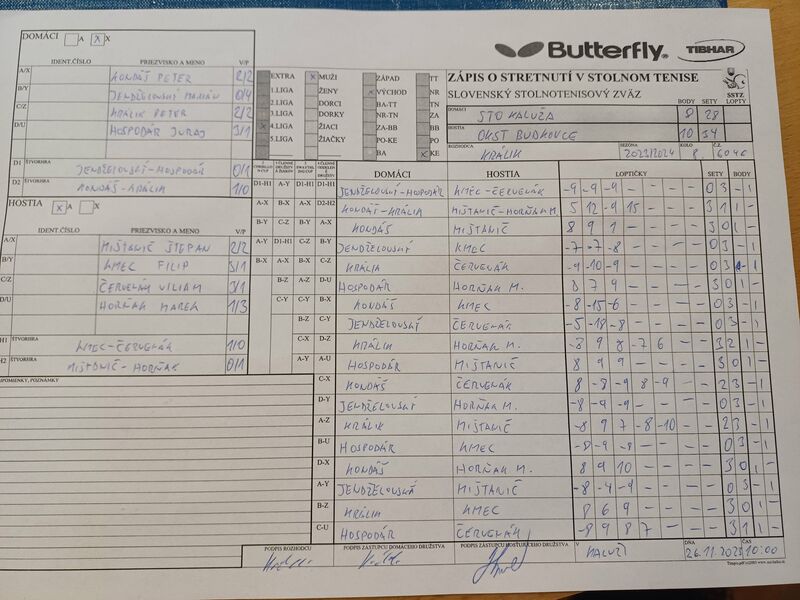 DOMÁCI A X X
IDENT.ČÍSLO PRIEZVISKO A MENO V/P
A/X KONDÁŠ PETER 2/2
B/Y JENDŽELOVSKÝ MARIÁN 0/4
C/Z KRÁLIK PETER 2/2
D/U HOSPODÁR JURAJ 3/1
D1 ŠTVORHRA JENDŽELOVSKÝ-HOSPODÁR 0/1
D2 KONDÁŠ-KRÁLIK 1/0
HOSTIA X A X
IDENT.ČÍSLO PRIEZVISKO A MENO V/P
A/X MIŠTANIČ ŠTEPAN 2/2
B/Y KMEC FILIP 3/1
C/Z ČERVEŇÁK VILIAM 3/1
D/U HORŇÁK MAREK 1/3
H1 ŠTVORHRA KMEC-ČERVEŇÁK 1/0
H2 ŠTVORHRA MIŠTANIČ-HORŇÁK 0/1
PRIPOMIENKY, POZNÁMKY
EXTRA X MUŽI ZÁPAD TT
1.LIGA ŽENY VÝCHOD NR
2.LIGA DORCI BA-TT TN
3.LIGA DORKY NR-TN ZA
4.LIGA ŽIACI ZA-BB BB
5.LIGA ŽIAČKY PO-KE PO
BA KE
Butterfly TIBHAR
ZÁPIS O STRETNUTÍ V STOLNOM TENISE
SLOVENSKÝ STOLNOTENISOVÝ ZVÄZ
SSTZ
BODY SETY LOPTY
DOMÁCI STO KALUŽA 8 28
HOSTIA OKST BUDKOVCE 10 34
ROZHODCA KRÁLIK SEZÓNA 2023/2024 KOLO 8 Č.Z. 6046
DOMÁCI HOSTIA LOPTIČKY SETY BODY
D1-H1 A-Y D1-H1 D1-H1 JENDŽELOVSKÝ-HOSPODÁR KMEC-ČERVEŇÁK -9 -9 -9 - - 0 3 - 1
A-X B-X A-X D2-H2 KONDÁŠ-KRÁLIK MIŠTANIČ-HORŇÁK M. 5 12 -9 15 - 3 1 1 -
B-Y C-Z B-Y A-X KONDÁŠ MIŠTANIČ 8 9 1 - - 3 0 1 -
A-Y D1-H1 C-Z B-Y JENDŽELOVSKÝ KMEC -7 -7 -8 - - 0 3 - 1
B-X A-X B-X C-Z KRÁLIK ČERVEŇÁK -9 -10 -9 - - 0 3 - 1
B-Z A-Z D-U HOSPODÁR HORŇÁK M. 8 7 9 - - 3 0 1 -
C-Y C-Y B-X KONDÁŠ KMEC -8 -15 -6 - - 0 3 - 1
B-Z C-Y JENDŽELOVSKÝ ČERVEŇÁK -5 -18 -8 - - 0 3 - 1
C-X D-Z KRÁLIK HORŇÁK M. -3 9 8 -7 6 3 2 1 -
A-Y A-U HOSPODÁR MIŠTANIČ 8 9 9 - - 3 0 1 -
C-X KONDÁŠ ČERVEŇÁK 8 -8 -9 8 -9 2 3 - 1
D-Y JENDŽELOVSKÝ HORŇÁK M. -8 -9 -9 - - 0 3 - 1
A-Z KRÁLIK MIŠTANIČ -8 9 7 -8 -10 2 3 - 1
B-U HOSPODÁR KMEC -8 -9 -8 - - 0 3 - 1
D-X KONDÁŠ HORŇÁK M. 8 9 10 - - 3 0 1 -
A-Y JENDŽELOVSKÝ MIŠTANIČ -8 -4 -9 - - 0 3 - 1
B-Z KRÁLIK KMEC 8 6 9 - - 3 0 1 -
C-U HOSPODÁR ČERVEŇÁK -8 9 8 7 - 3 1 1 -
PODPIS ROZHODCU PODPIS ZÁSTUPCU DOMÁCEHO DRUŽSTVA PODPIS ZÁSTUPCU HOSŤUJÚCEHO DRUŽSTVA V KALUŽI DŇA 26.11.2023 ČAS 10:00